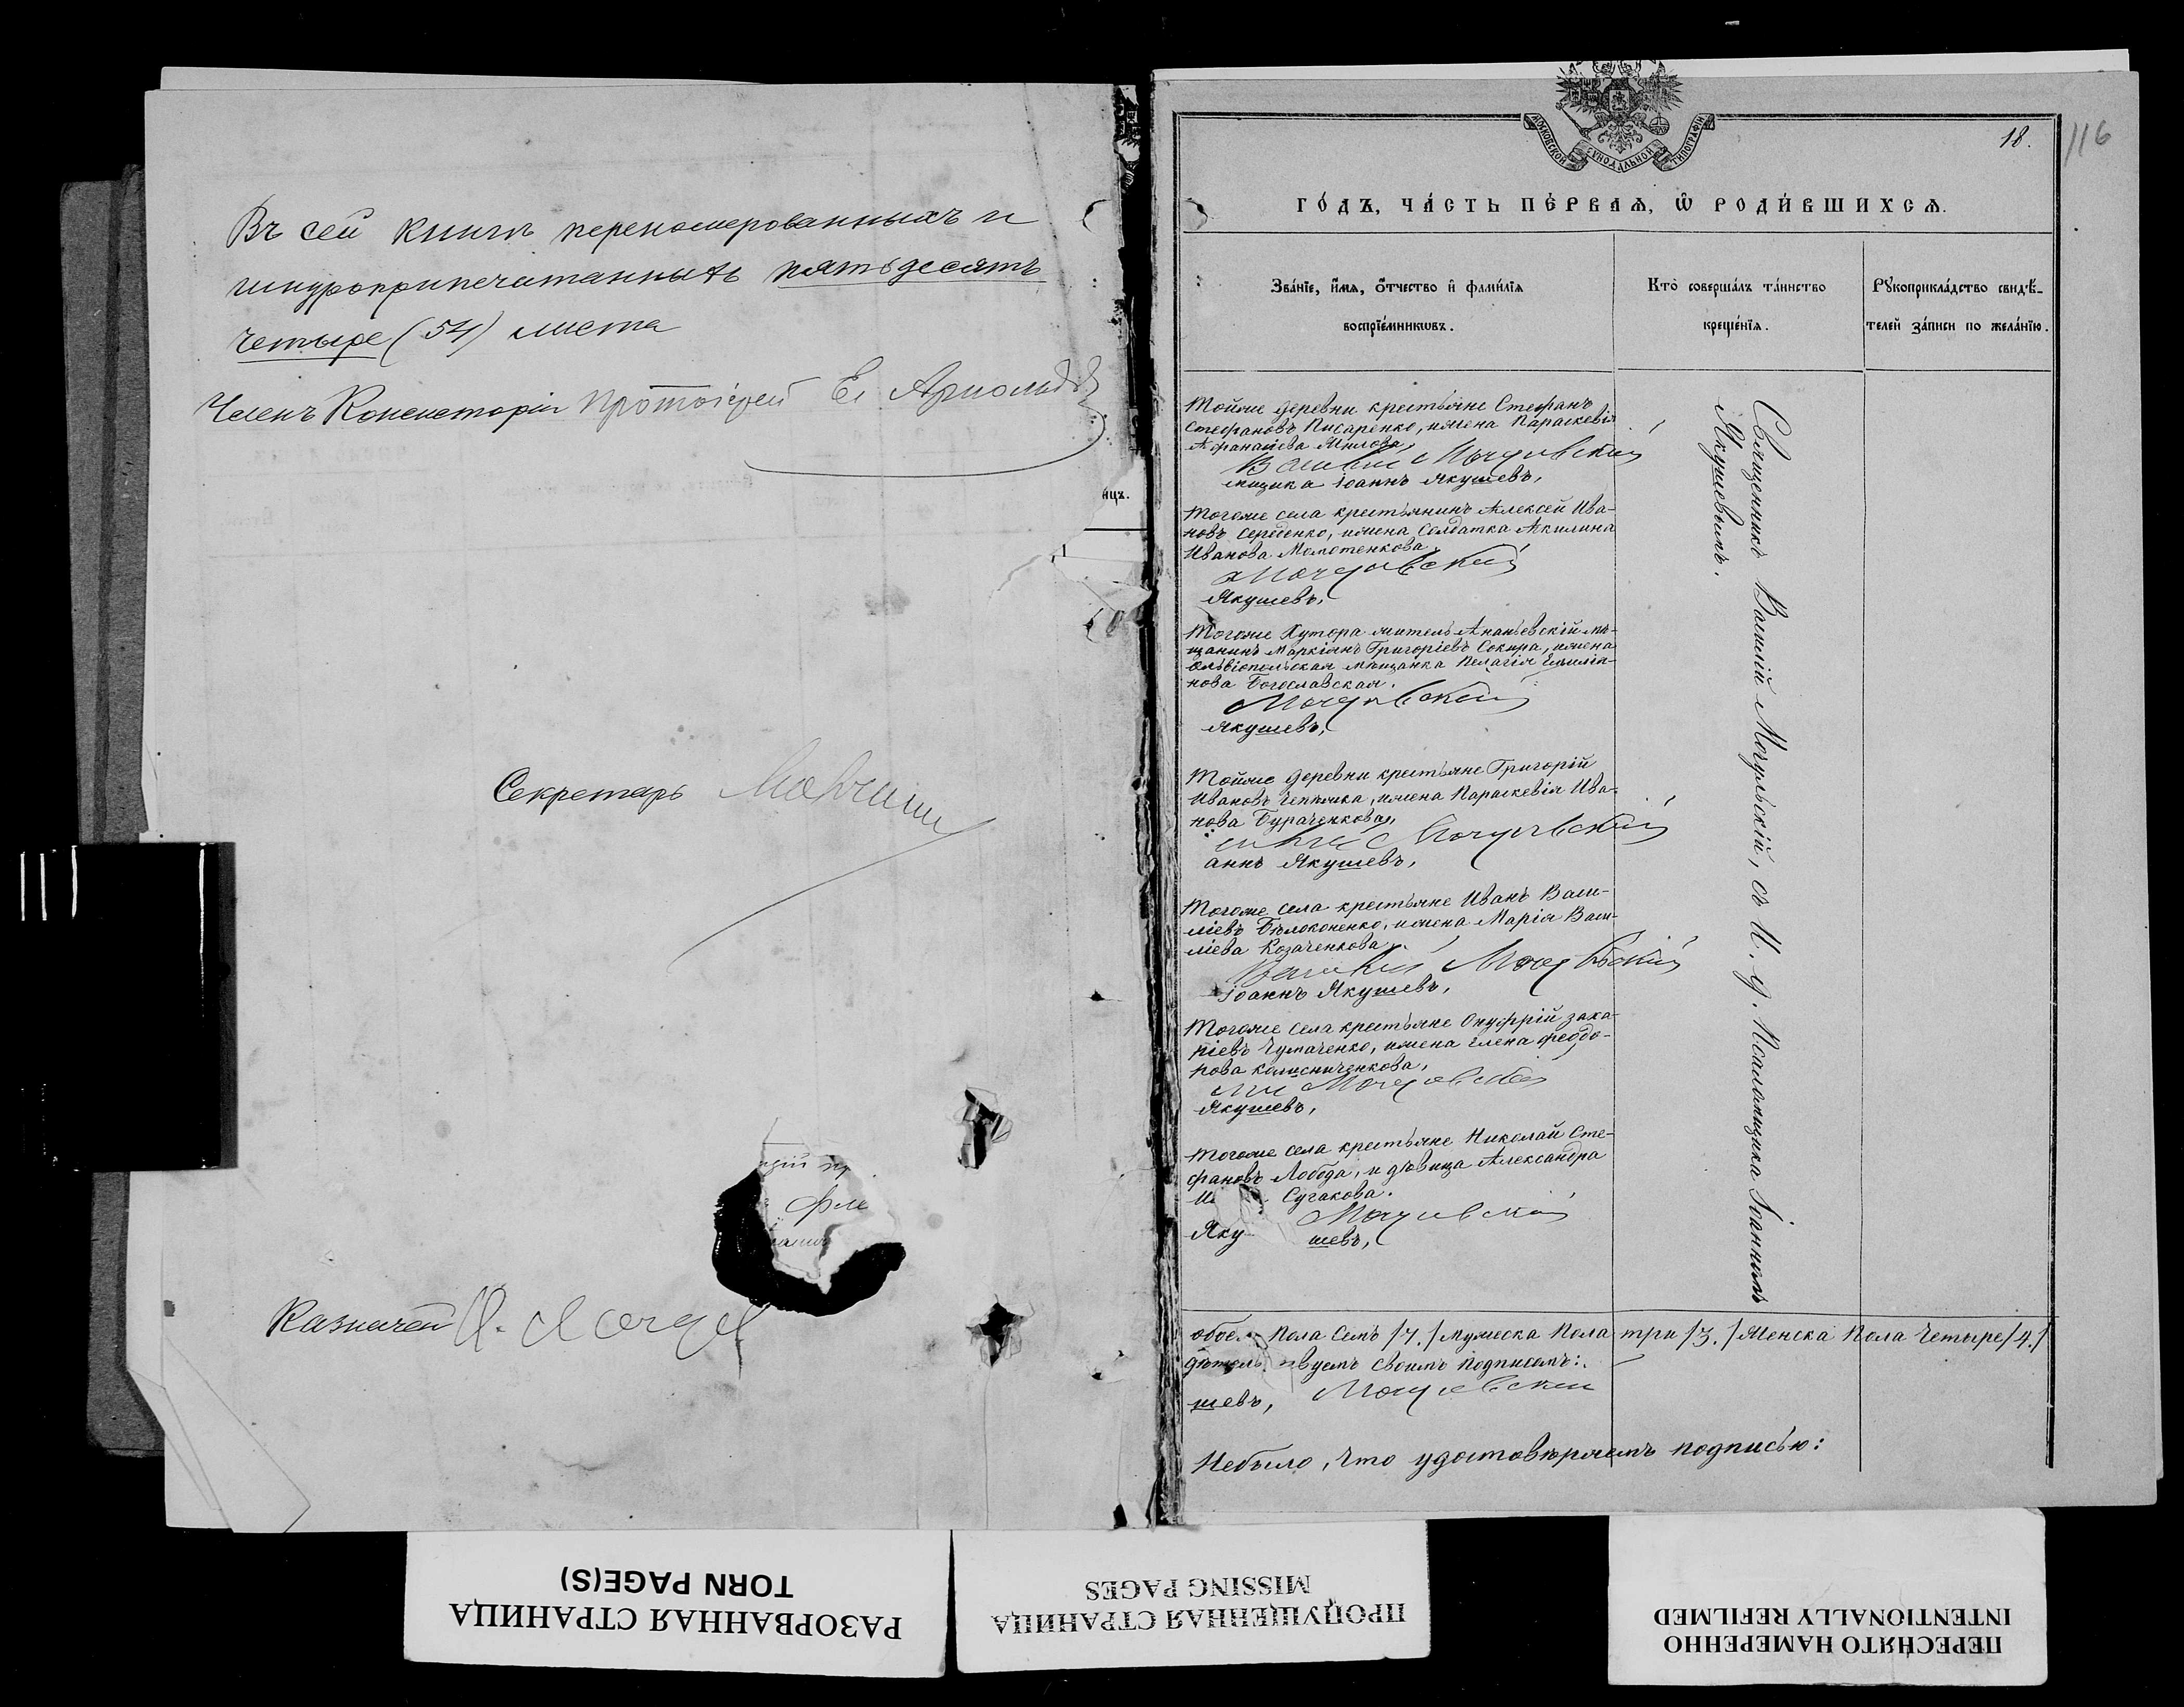 Въ сей книгѣ перенумерованныхъ и
шнуроприпечатанныхъ пятьдесятъ
четыре (54) листа
Членъ Консисторіи Протоіерей
Секретарь
Казначей
ицъ.
МОСКОВСКОЙ СѴНОДАЛЬНОЙ ТИПОГРАФІИ
18.
116
ГО́ДЪ, ЧА́СТЬ ПЕ́РВАѦ, Ѡ҆ РОДИ́ВШИХСѦ.
Зва́нїе, и҆́мѧ, ѻ҆́тчество и҆ фами́лїѧ
воспрїе́мникѡвъ.
Кто̀ соверша́лъ та́инство
креще́нїѧ.
Рꙋкоприкла́дство свидѣ́-
телей за́писи по жела́нїю.
Тойже деревни крестьяне Стефанъ
Стефановъ Писаренко, и жена Параскевія
Афанасіева
Василій Мочульскій
мщика Іоаннъ Якушевъ,
Тогоже села крестьянинъ Алексей Ива-
новъ Середенко, и жена Солдатка Акилина
Иванова
Мочульскій
Якушевъ,
Тогоже Хутора житель Ананьевскій мѣ-
щанинъ Маркіанъ Григоріевъ Сокира, и жена
Ольвіопольская мѣщанка Пелагія
нова Богославская.
Мочульскій
Якушевъ,
Тойже деревни крестьяне Григорій
Ивановъ и жена Параскевія Ива-
нова Бураченкова,
Мочульскій
аннъ Якушевъ,
Тогоже села крестьяне Иванъ Васи-
ліевъ Бѣлоконенко, и жена Марія Васи-
ліева Козаченкова.
Василій Мочульскій
Іоаннъ Якушевъ,
Тогоже села крестьяне Онуфрій Заха-
ріевъ Чумаченко, и жена Елена Феодо-
рова Колисниченкова,
Мочульскій
Якушевъ,
Тогоже села крестьяне Николай Сте-
фановъ Лобода, и дѣвица Александра
Сугакова.
Мочульскій
Яку шевъ,
Священникъ Василій Мочульскій, съ И. д. Псаломщика Іоанномъ
Якушевымъ.
обоего Пола Семь /7./ мужеска Пола три /3./ женска Пола Четыре /4./
дѣтель вуемъ своимъ подписомъ:
шевъ, Мочульскій
Небыло, что удостовѣряемъ подписью:
РАЗОРВАННАЯ СТРАНИЦА
TORN PAGE(S)
ПРОПУЩЕННАЯ СТРАНИЦА
MISSING PAGES
ПЕРЕСНЯТО НАМЕРЕННО
INTENTIONALLY REFILMED